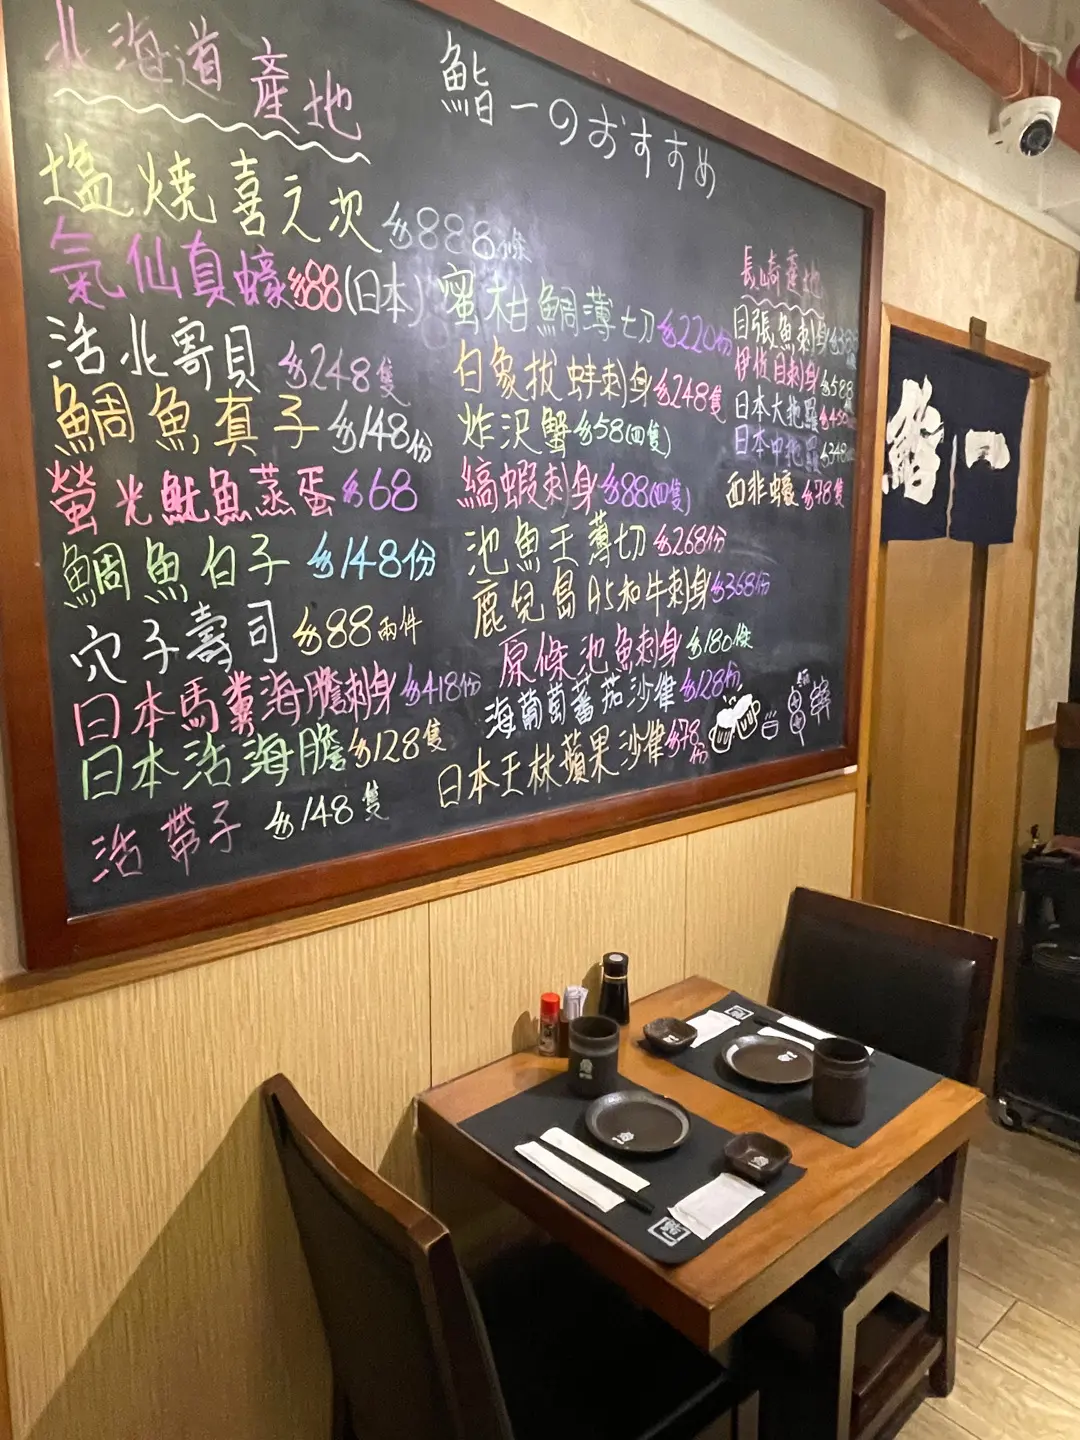 北海道產地
鮨一のおすすめ
塩燒喜之次 $888條
氣仙真蠔 $88(日本)
活北寄貝 $248隻
鯛魚真子 $148份
螢光魷魚蒸蛋 $68
鯛魚白子 $148份
穴子壽司 $88兩件
日本馬糞海膽刺身 $418份
日本活海膽 $128隻
活帶子 $148隻
蜜柑鯛薄切 $220份
白象拔蚌刺身 $248隻
炸沢蟹 $58(四隻)
縞蝦刺身 $88(四隻)
池魚王薄切 $268份
鹿兒島A5和牛刺身 $368份
原條池魚刺身 $180條
海葡萄蕃茄沙律 $128份
日本王林蘋果沙律 $78份
長崎產地
目張魚刺身
伊佐目刺身 $588
日本大地羅
日本中地羅 $348
面非蠔 $78隻
鮨一